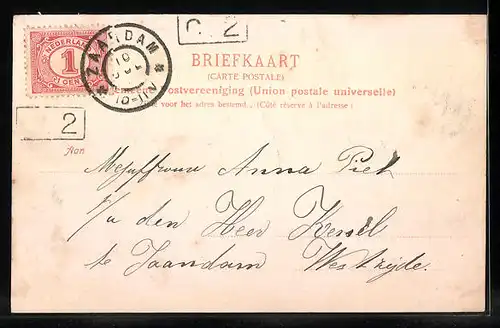 C. 2
NEDERLAND
1
CENT
ZAANDAM
10
BRIEFKAART
(CARTE POSTALE)
Algemeene Postvereeniging (Union postale universelle)
Zijde voor het adres bestemd... (Côté réservé à l'adresse)
2
Aan
Mejuffrouw Anna Piet
p/a den Heer Kessel
te Zaandam Westzijde.